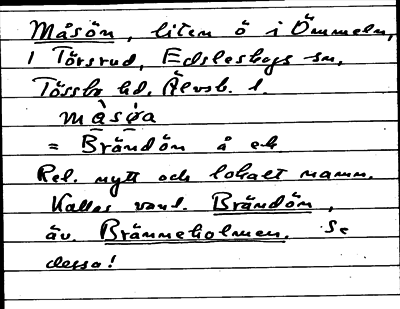 Måsön, liten ö i Ömmeln,
i Törsrud, Edsleskogs sn,
Tössbo hd, Älvsb. l.
måsøa
= Brändön å ek
Rel. nytt och lokalt namn.
Kallas vanl. Brändön,
äv. Bränneholmen. Se
dessa!